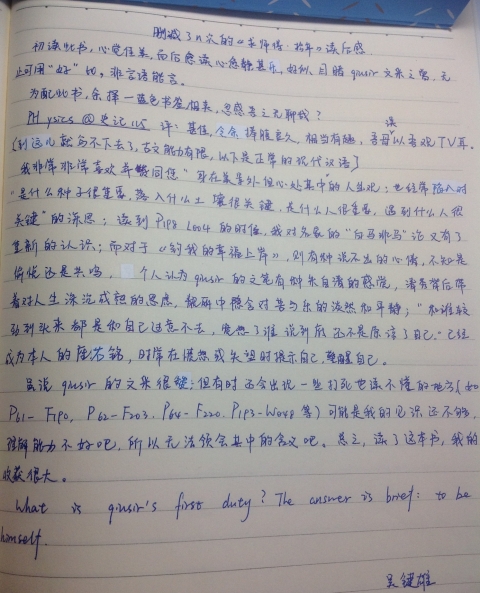 删减了n次的《求师得·拾年》读后感
初读此书，心觉佳美，而后愈读心愈静甚乐，好似目睹qiusir文采之容，无
止可用"好"切，非言语能言。
为配此书，余择一蓝色书签相夹，忽感吾之无聊哉？
PHysics @ 史记115 评：甚佳，令余捧腹良久，相当有趣，吾母误以吾观TV耳。
(到这儿就写不下去了，古文能力有限，以下是正常的现代汉语)
我非常非常喜欢并赞同您"存在某意外但心处其中"的人生观；也经常陷入对
"是什么种子很重要，落入什么土壤很关键，是什么人很重要，遇到什么人很
关键"的深思；读到P198 L004的时候，我对名家的"白马非马"论又有了
重新的认识；而对于《钓我的幸福上岸》，则有种说不出的心情，不知是
惋惜还是共鸣，个人认为qiusir的文笔有种朱自清的感觉，清秀背后带
着对人生深沉成熟的思虑，靓丽中隐含对苦与乐的淡然和平静；"和谁较
劲到头来都是和自己过意不去，宽恕了谁说到底还不是原谅了自己。"已经
成为本人的座右铭，时常在愤怒或失望时提示自己，警醒自己。
虽说qiusir的文采很赞；但有时还会出现一些打死也读不懂的地方(如
P61-F190，P62-F203，P64-F220，P193-W048等)可能是我的见识还不够，
理解能力不好吧，所以无法领会其中的含义吧。总之，读了这本书，我的
收获很大。
What is qiusir's first duty? The answer is brief: to be
himself.
吴键雄